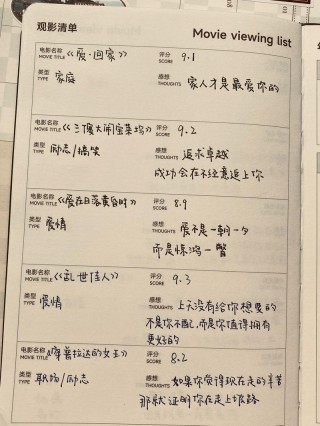 观影清单 Movie viewing list
电影名称 MOVIE TITLE 《爱·回家》 评分 SCORE 9.1
类型 TYPE 家庭 感想 THOUGHTS 家人才是最爱你的
电影名称 MOVIE TITLE 《三傻大闹宝莱坞》 评分 SCORE 9.2
类型 TYPE 励志/搞笑 感想 THOUGHTS 追求卓越
成功会在不经意追上你
电影名称 MOVIE TITLE 《爱在日落黄昏时》 评分 SCORE 8.9
类型 TYPE 爱情 感想 THOUGHTS 爱不是一朝一夕
而是惊鸿一瞥
电影名称 MOVIE TITLE 《乱世佳人》 评分 SCORE 9.3
类型 TYPE 爱情 感想 THOUGHTS 上天没有给你想要的
不是你不配,而是你值得拥有
更好的
电影名称 MOVIE TITLE 《穿普拉达的女王》 评分 SCORE 8.2
类型 TYPE 职场/励志 感想 THOUGHTS 如果你觉得现在走的辛苦
那就证明你在走上坡路